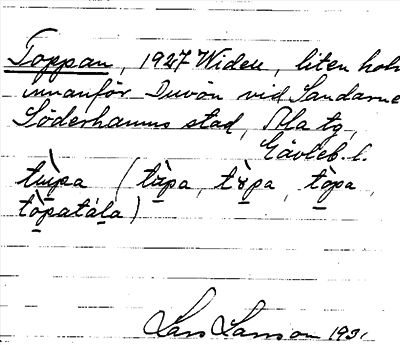 Toppan, 1927 Widen, liten holm
innanför Duvön vid Sandarne
Söderhamns stad, Ala tg,
Gävleb. l.
(tùpa, tòpa,
tòpatála)
Lars Larsson 1931